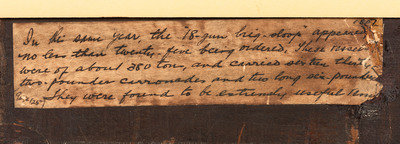 1802
In the same year the "18-gun brig sloop" appeared
no less than twenty five being ordered. These vessels
were of about 380 tons, and carried sixteen thirty
two pounder carronades and two long six pounders
They were found to be extremely useful